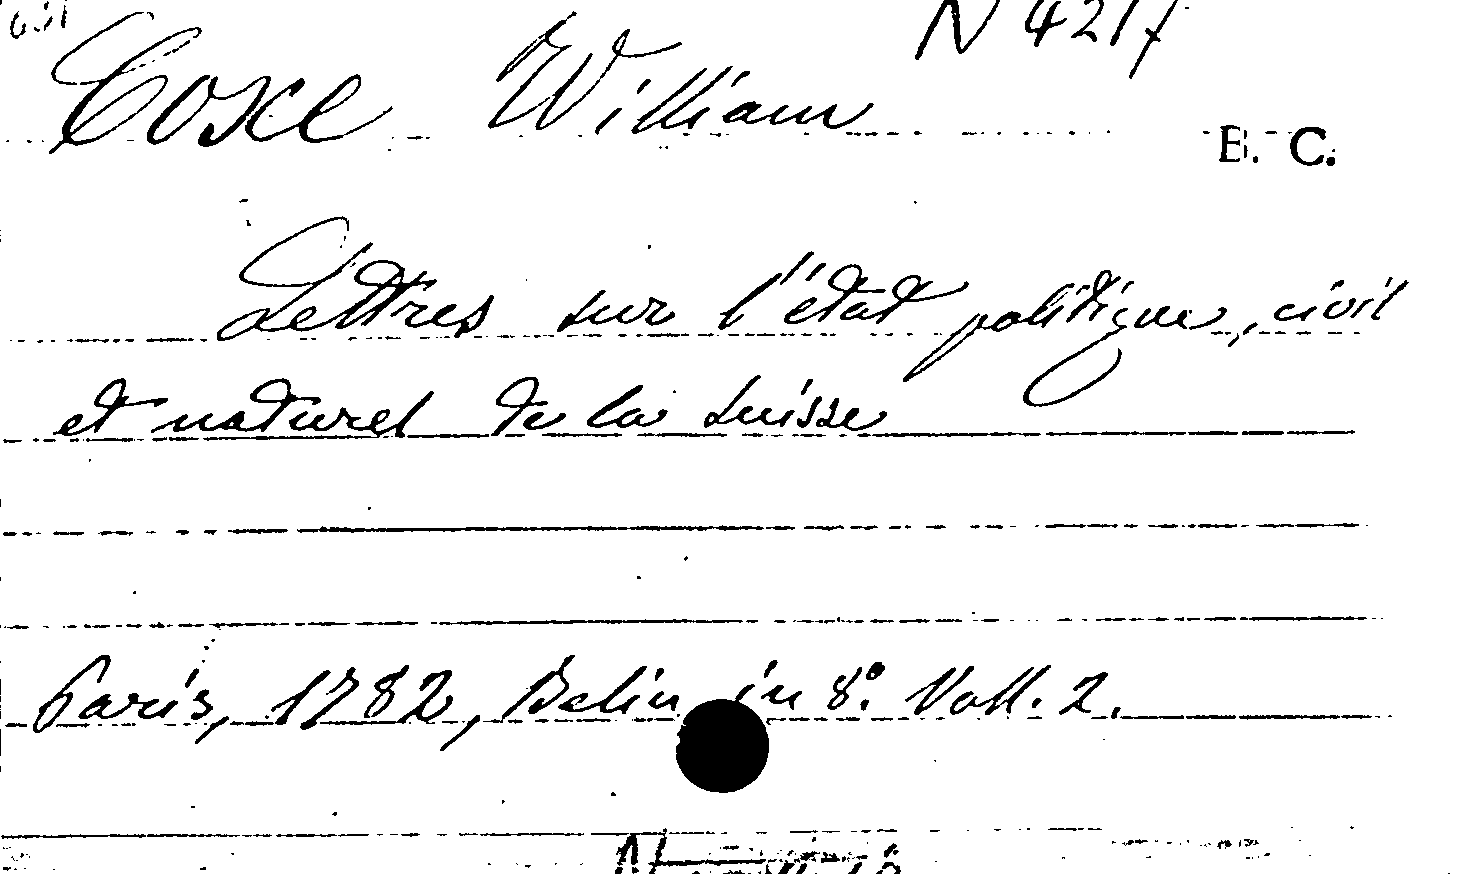 N 4217
Coxe William
B. C.
Lettres sur l'état politique, civil
et naturel de la Suisse
Paris, 1782, Belin in 8.° Voll. 2.